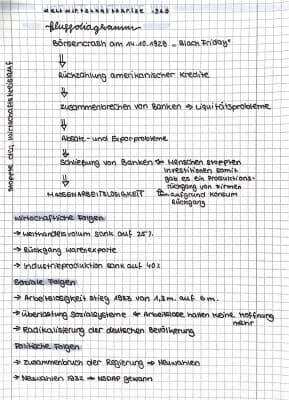 Weltwirtschaftskrise 1929
-flussdiagramm-
Börsencrash am 14.10.1929 „Black Friday"
Rückzahlung amerikanischer Kredite
zusammenbrechen von Banken → Liquitätsprobleme
Absatz- und Exporprobleme
Schließung von Banken ← Menschen stoppten
Investitionen somit
gab es ein Produktions-
rückgang von Firmen
MASSENARBEITSLOSIGKEIT ← aufgrund Konsum
Rückgang
stoppte den Wirtschaftskreislauf
Wirtschaftliche Folgen
→ Welthandelsvolum sank auf 25%
→ Rückgang Warenexporte
→ Industrieproduktion sank auf 40%
Soziale Folgen
→ Arbeitslosigkeit stieg 1933 von 1,3m. auf 6m.
→ Überlastung Sozialsysteme ← Arbeitslose hatten keine Hoffnung
mehr
→ Radikalisierung der deutschen Bevölkerung
Politische Folgen
→ zusammenbruch der Regierung → Neuwahlen
→ Neuwahlen 1932 → NSDAP gewann